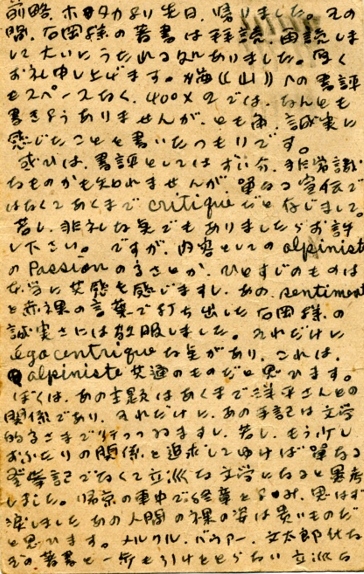 前略、ホタカより先日、帰りました。その
間、石岡様の著書は拝読、再読しま
して大いにうたれる処ありました。厚く
お礼申し上げます。"《山》への書評
もスペースなく、400×2では、なんとも
書きようありませんが、とも角、誠実に
感じたことを書いたつもりです。
或ひは、書評としてはずい分、非常識
なものかも知れませんが、単なる宣伝で
はなくてあくまでcritiqueだと存じまして
若し、非礼な点でもありましたらお許
し下さい。ですが、内容としてのalpiniste
のPassionのようなことが、ひとすじのものは
本当に共感を感じますし、あの、sentiment
を赤裸の言葉で打ち出した石岡様の
誠実さには敬服しました。それだけに
égocentriqueな点があり、これは、
alpiniste共通のものだと思ひます。
ぼくは、あの主題はあくまで洋平さんとの
関係であり、それだけに、あの手記は文学
的な さまで行ってゐますし、若し、もう少し
おふたりの関係を追求してゆけば単なる
登攀記でなくて立派な文学になると思考
しました。帰京の車中で 読み、思はず
しましたあの人間の裸の姿は貴いものだ
と思ひます。メルクル・バウアー、立太郎
の著書と一歩もひけをとらない立派な